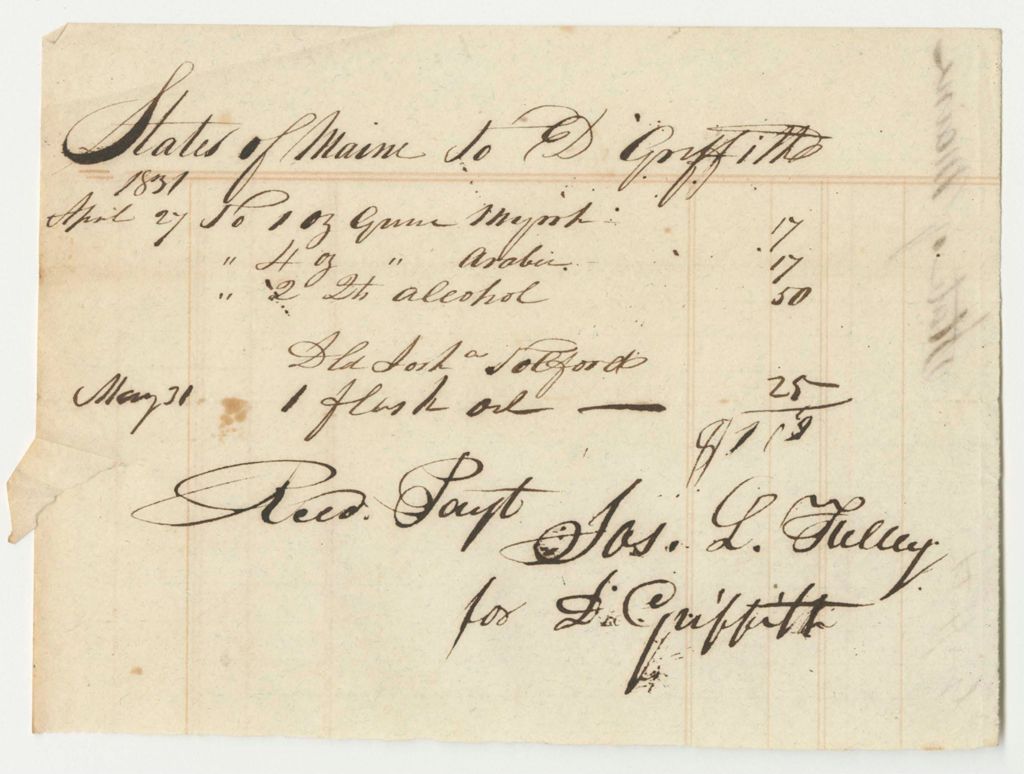 States of Maine To D Griffith
1831
April 27 To 1 oz Gum Myrrh 17
" 4 oz " Arabic 17
" 2 Qts alcohol 50
Dld Josha Tolford
May 31 1 flask oil — 25
$1 19
Recd. Payt
Jas. L.
for D. Griffith
State of Maine